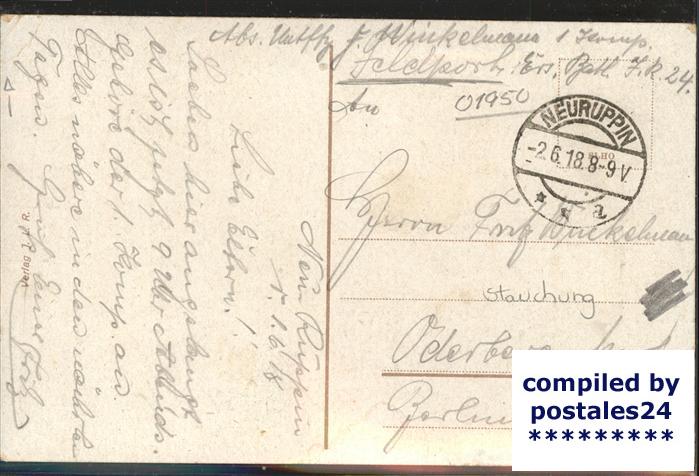 Abs. Untffz. F. Winkelmann 1 Komp.
Feldpost. Ers. Batl. I.R. 24.
An
01950
NEURUPPIN
-2.6.18.8-9V.
* * a
Herrn Fritz Winkelmann
Stauchung
Oderberg
Berlin
Neu Ruppin
d. 1.6.18
Liebe Eltern!
Soeben hier angelangt
es ist jetzt 9 Uhr Abends.
Gehöre der 1. Komp. an.
Alles nähere in den nächsten
Tagen. Gruß Euer Fritz
Verlag
compiled by
postales24
*********